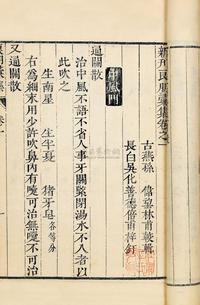 新刋良朋彙集卷之一
古燕孫 偉望林甫
長白吳化善德
中風門
通關散
治中風不語不省人事牙關緊閉湯水不入者以
此吹之
生南星 生半夏 猪牙皂各等分
右為細末用少許吹鼻内有嚏可治無嚏不可治
又通關散
良朋彙集 卷一